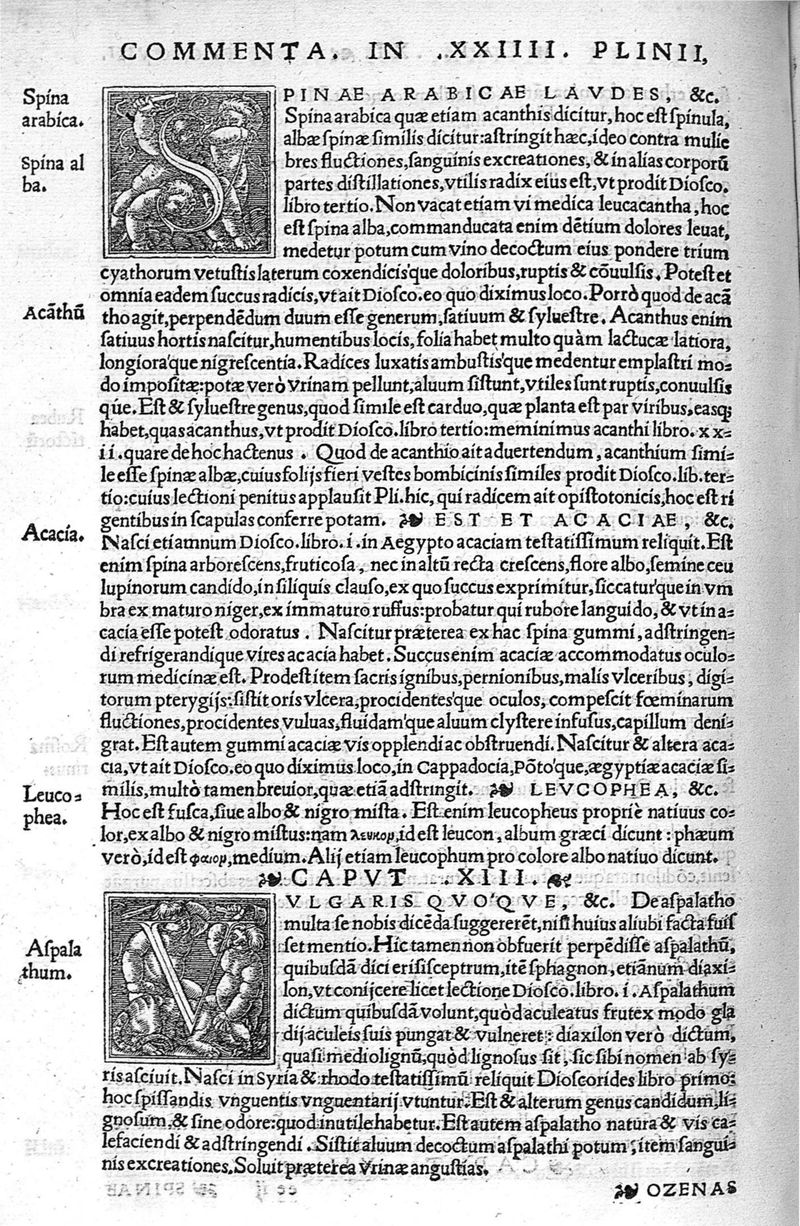 COMMENTA. IN .XXIIII. PLINII,
Spína
arabíca.
SPINAE ARABICAE LAVDES, &c.
Spína arabíca quæ etíam acanthís dícítur, hoc est spínula,
albæ spínæ símílís dícítur: astríngít hæc, ídeo contra mulíe
Spína al
ba.
bres fluctíones, sanguínís excreatíones, & ín alías corporū
partes dístíllatíones, vtílís radíx eíus est, vt prodít Díosco.
líbro tertío. Non vacat etíam ví medíca leucacantha, hoc
est spína alba, commanducata ením dētíum dolores leuat,
medetur potum cum víno decoctum eíus pondere tríum
cyathorum vetustís laterum coxendícísque dolorībus, ruptís & cōuulsís. Potest et
omnía eadem succus radícís, vt aít Díosco. eo quo díxímus loco. Porrò quod de acā
Acāthū
tho agít, perpendēdum duum esse generum, satíuum & sylueſtre. Acanthus ením
satíuus hortís nascítur, humentíbus locís, folía habet multo quàm lactucæ latíora,
longíora'que nígrescentía. Radíces luxatís ambustís'que medentur emplastrí mo-
do ímposítæ: potæ verò vrínam pellunt, aluum sístunt, vtíles sunt ruptís, conuulsís
qúe. Est & sylueſtre genus, quod símíle est carduo, quæ planta est par víríbus, easq;
habet, quas acanthus, vt prodít Díosco. líbro tertío: memínímus acanthí líbro. xx-
íí. quare de hoc hactenus. Quod de acanthío aít aduertendum, acanthíum símí-
le esse spínæ albæ, cuíus folíjs fíerí vestes bombícínís símíles prodít Díosco. líb. ter-
tío: cuíus lectíoní penítus applausít Plí. híc, quí radícem aít opístotonícís, hoc est rí
gentíbus ín scapulas conferre potam. ❧ EST ET ACACIAE, &c.
Acacía.
Nascí etíamnum Díosco. líbro. í. ín Aegypto acacíam testatíssímum relíquít. Est
ením spína arborescens, frutícosa, nec ín altū recta crescens, flore albo, semíne ceu
lupínorum candído, ín sílíquís clauso, ex quo succus exprímítur, síccatur'que ín vm
bra ex maturo níger, ex ímmaturo ruffus: probatur quí rubore languído, & vt ín a-
cacía esse potest odoratus. Nascítur præterea ex hac spína gummí, adstríngen-
dí refrígerandíque víres acacía habet. Succus ením acacíæ accommodatus oculo-
rum medícínæ est. Prodest ítem sacrís ígníbus, perníoníbus, malís vlceríbus, dígí-
torum pterygíjs: sístít orís vlcera, procídentes'que oculos, compescít fœmínarum
fluctíones, procídentes vuluas, fluídam'que aluum clystere ínfusus, capíllum dení-
grat. Est autem gummí acacíæ vís opplendí ac obstruendí. Nascítur & altera aca-
cía, vt aít Díosco. eo quo díxímus loco, ín Cappadocía, Pōto'que, ægyptíæ acacíæ sí-
mílís, multò tamen breuíor, quæ etíā adstríngít. ❧ LEVCOPHEA, &c.
Leuco-
phea.
Hoc est fusca, síue albo & nígro místa. Est ením leucopheus propríè natíuus co-
lor, ex albo & nígro místus: nam λευκορ, íd est leucon, album græcí dícunt: phæum
verò, íd est φαιορ, medíum. Alíj etíam leucophum pro colore albo natíuo dícunt.
❧ CAPVT .XIII. ❧
VVLGARIS QVO'QVE, &c. De aspalatho
multa se nobís dícēda suggererēt, nísí huíus alíubí facta fuís
Aspala
thum.
set mentío. Híc tamen non obfuerít perpēdísse aspalathū,
quíbusdā dící erísísceptrum, ítē sphagnon, etíānum díaxí-
lon, vt conijcere lícet lectíone Díosco. líbro. í. Aspalathum
díctum quíbusdā volunt, quòd aculeatus frutex modo gla
díj aculeís suís pungat & vulneret: díaxílon verò díctum,
quasí medíolígnū, quòd lígnosus sít, síc síbí nomen ab sy-
rís ascíuít. Nascí ín Syría & rhodo testatíssímū relíquít Díoscorídes líbro prímo:
hoc spíssandís vnguentís vnguentaríj vtuntur. Est & alterum genus candídum, lí-
gnosum, & síne odore: quod ínutíle habetur. Est autem aspalatho natura & vís ca-
lefacíendí & adstríngendí. Sístít aluum decoctum aspalathí potum, ítem sanguí-
nís excreatíones. Soluít præterea vrínæ angustías.
❧ OZENAS